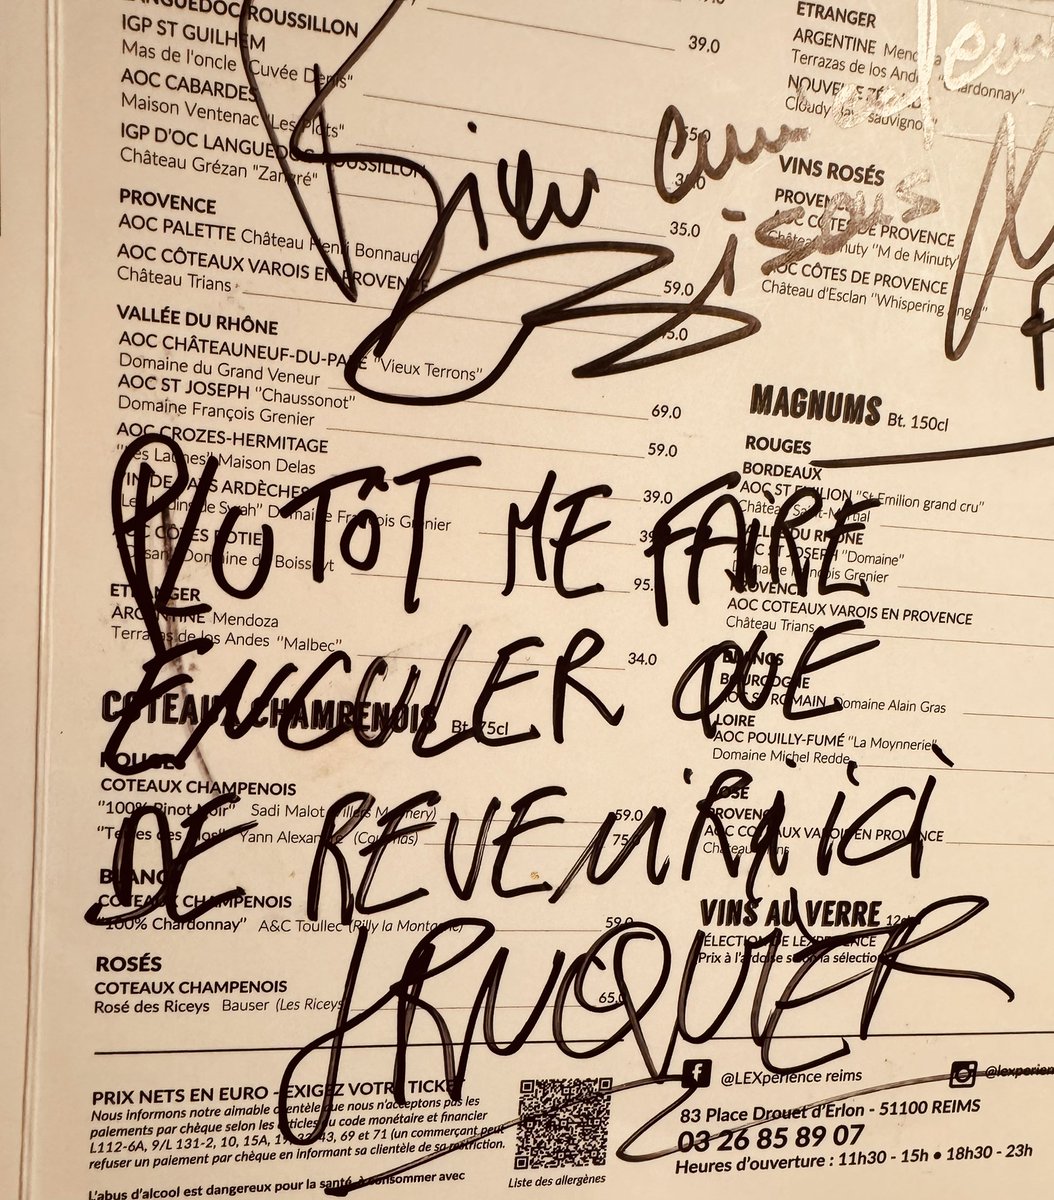 LANGUEDOC ROUSSILLON
IGP ST GUILHEM
Mas de l'oncle "Cuvée Denis" 39.0
AOC CABARDES
Maison Ventenac "Les Plots" 55.0
IGP D'OC LANGUEDOC ROUSSILLON
Château Grézan "Zangré"
PROVENCE
AOC PALETTE Château Henri Bonnaud 35.0
AOC CÔTEAUX VAROIS EN PROVENCE
Château Trians 59.0
VALLÉE DU RHÔNE
AOC CHÂTEAUNEUF-DU-PAPE "Vieux Terrons"
Domaine du Grand Veneur 69.0
AOC ST JOSEPH "Chaussonot"
Domaine François Grenier 59.0
AOC CROZES-HERMITAGE
"Les Launes" Maison Delas 39.0
VIN DE PAYS ARDÈCHES
Domaine François Grenier
AOC CÔTES ROTIE
Domaine de Boisseyt 95.
ETRANGER
ARGENTINE Mendoza
Terrazas de los Andes "Malbec" 34.0
COTEAUX CHAMPENOIS Bt. 75cl
ROUGES
COTEAUX CHAMPENOIS
"100% Pinot Noir" Sadi Malot (Villers Marmery) 59.0
Yann Alexandre 75.
BLANC
COTEAUX CHAMPENOIS
"100% Chardonnay" A&C Toullec (Rilly la Montagne) 59.0
ROSÉS
COTEAUX CHAMPENOIS
Rosé des Riceys Bauser (Les Riceys) 65.0
ETRANGER
ARGENTINE Mendoza
Terrazas de los Andes "Chardonnay"
NOUVELLE ZÉLANDE
Cloudy Bay "sauvignon"
VINS ROSÉS
PROVENCE
AOC COTES DE PROVENCE
Château Minuty "M de Minuty"
AOC CÔTES DE PROVENCE
Château d'Esclan "Whispering Angel"
MAGNUMS Bt. 150cl
ROUGES
BORDEAUX
AOC ST EMILION "St Emilion grand cru"
Château Saint-Martial
VALLÉE DU RHÔNE
AOC ST JOSEPH "Domaine"
Domaine François Grenier
PROVENCE
AOC COTEAUX VAROIS EN PROVENCE
Château Trians
BLANCS
BOURGOGNE
AOC ST ROMAIN Domaine Alain Gras
LOIRE
AOC POUILLY-FUMÉ "La Moynnerie"
Domaine Michel Redde
ROSÉ
PROVENCE
AOC COTEAUX VAROIS EN PROVENCE
Château Trians
VINS AU VERRE 12cl
SÉLECTION DE LEXPERIENCE
Prix à l'ardoise selon la sélection
Bien
Bisous
PLUTÔT ME FAIRE
ENCULER QUE
DE REVENIR ICI
RUQUIER
PRIX NETS EN EURO - EXIGEZ VOTRE TICKET
Nous informons notre aimable clientèle que nous n'acceptons pas les
paiements par chèque selon les articles du code monétaire et financier
L112-6A, 9/L 131-2, 10, 15A, 43, 69 et 71 (un commerçant peut
refuser un paiement par chèque en informant sa clientèle de sa restriction.
L'abus d'alcool est dangereux pour la santé, à consommer avec
Liste des allergènes
@LEXperience reims
@lexperien
83 Place Drouet d'Erlon - 51100 REIMS
03 26 85 89 07
Heures d'ouverture : 11h30 - 15h • 18h30 - 23h